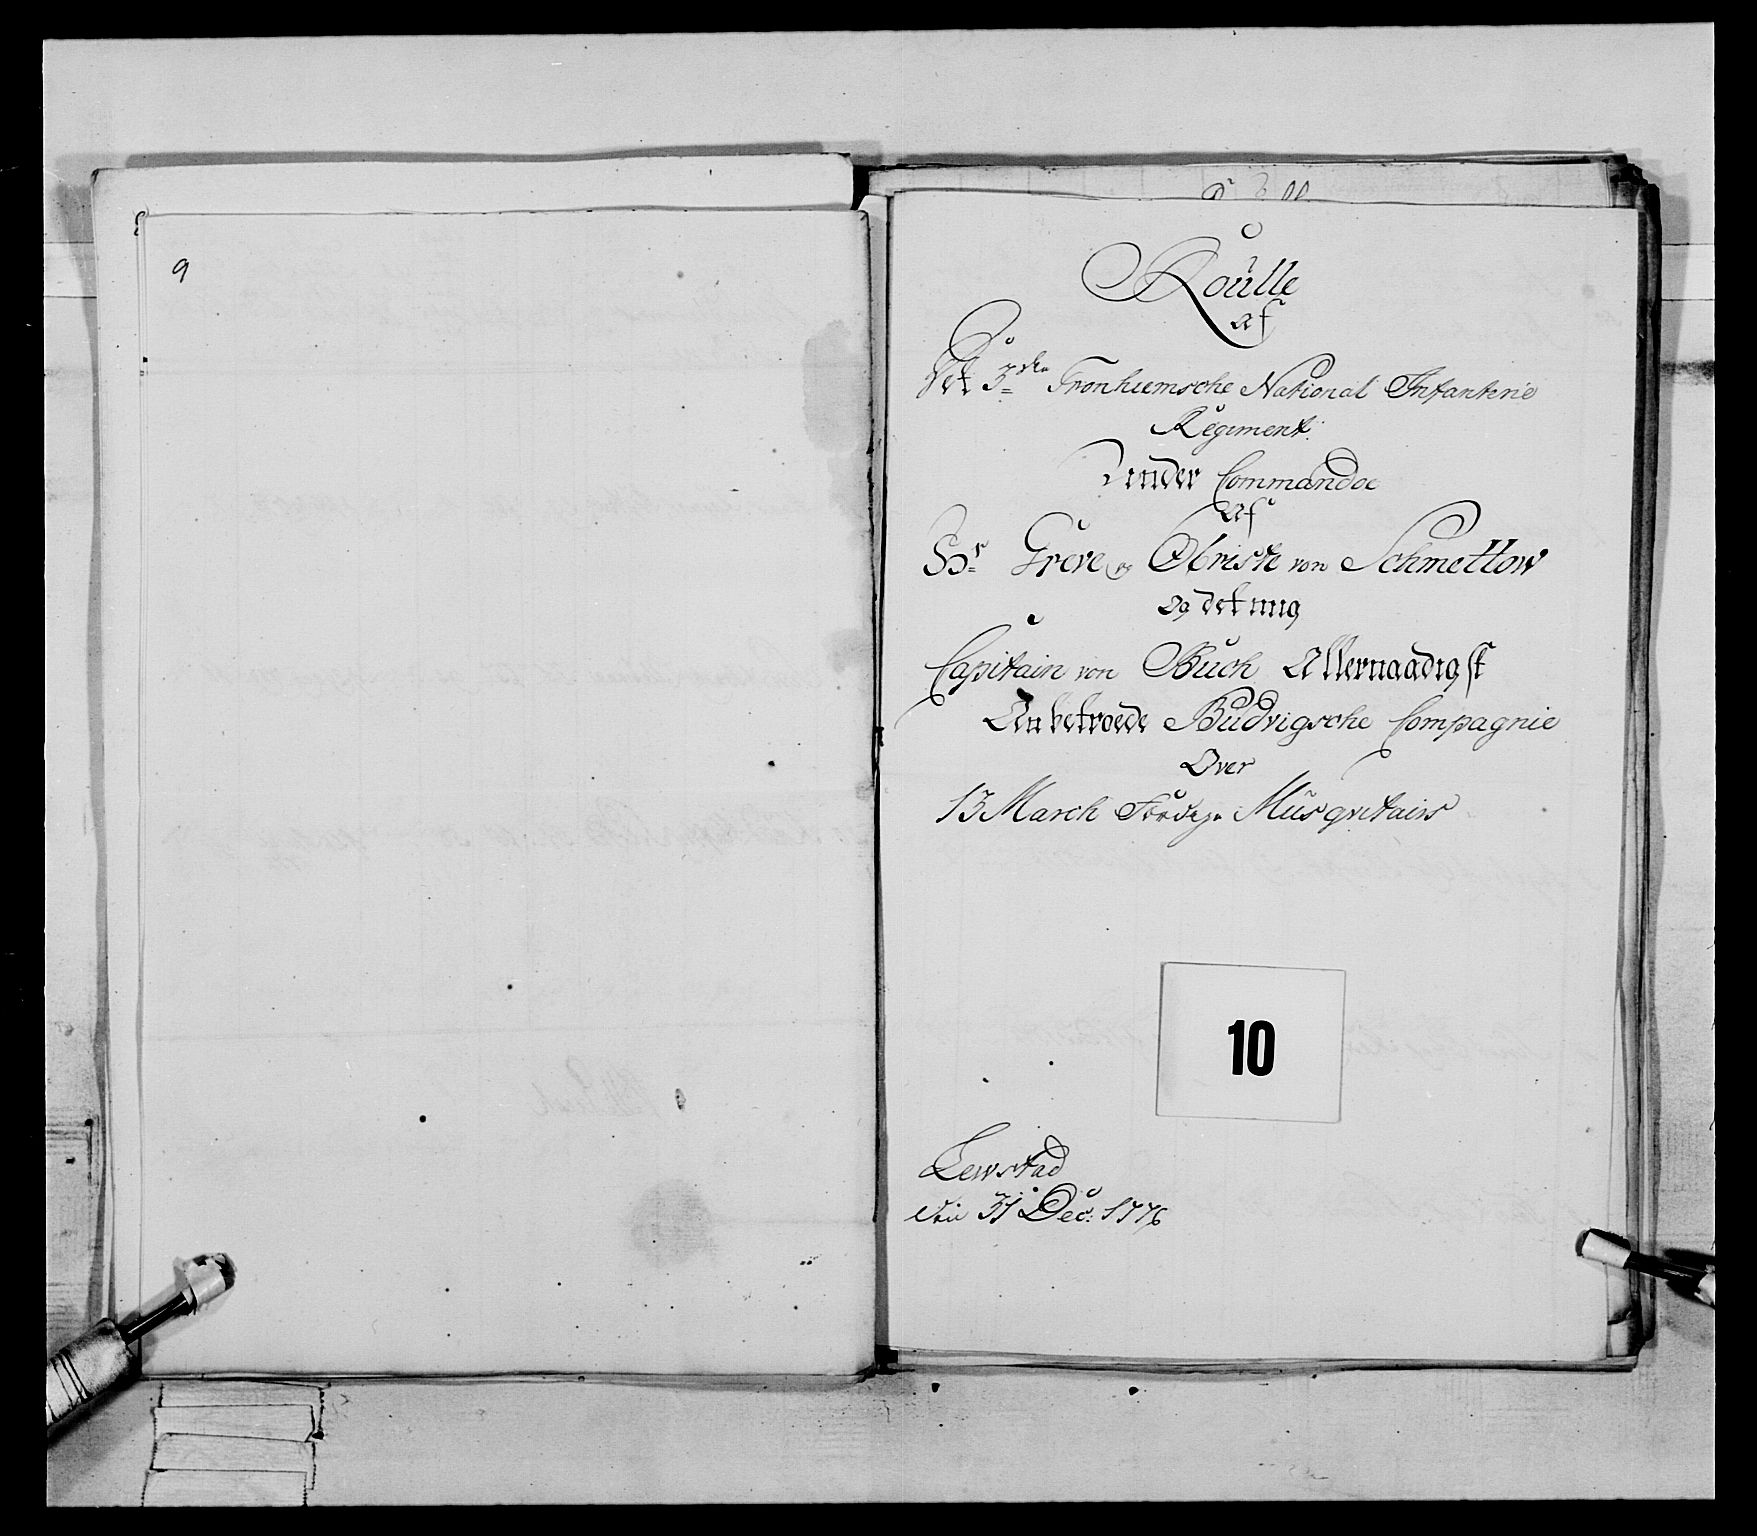 9
Roulle
Af
Det 3die Tronhiemsche National Infanterie
Regiment
Under Commandoe
Af
Hr Greve og Obriste von Schmettow
Og det mig
Capitain von Buch Allernaadigst
Anbetroede Budvigsche Compagnie
Over
13 March Færdige Musqvetairs
10
Lewstad
den 31 Dec: 1776